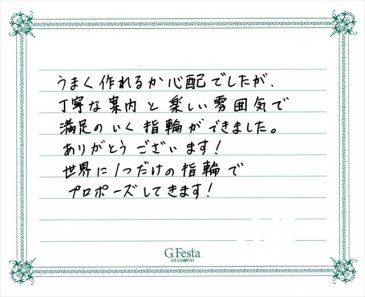 うまく作れるか心配でしたが、
丁寧な案内と楽しい雰囲気で
満足のいく指輪ができました。
ありがとうございます!
世界に1つだけの指輪で
プロポーズしてきます!
G.Festa
DIAMOND